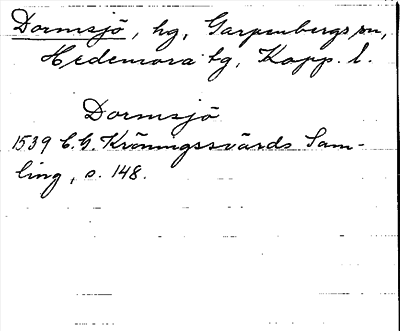 Dormsjö, hg, Garpenbergs sn,
Hedemora tg, Kopp. l.
Dormsjö
1539 C.G. Kröningssvärds Sam-
ling, s. 148.